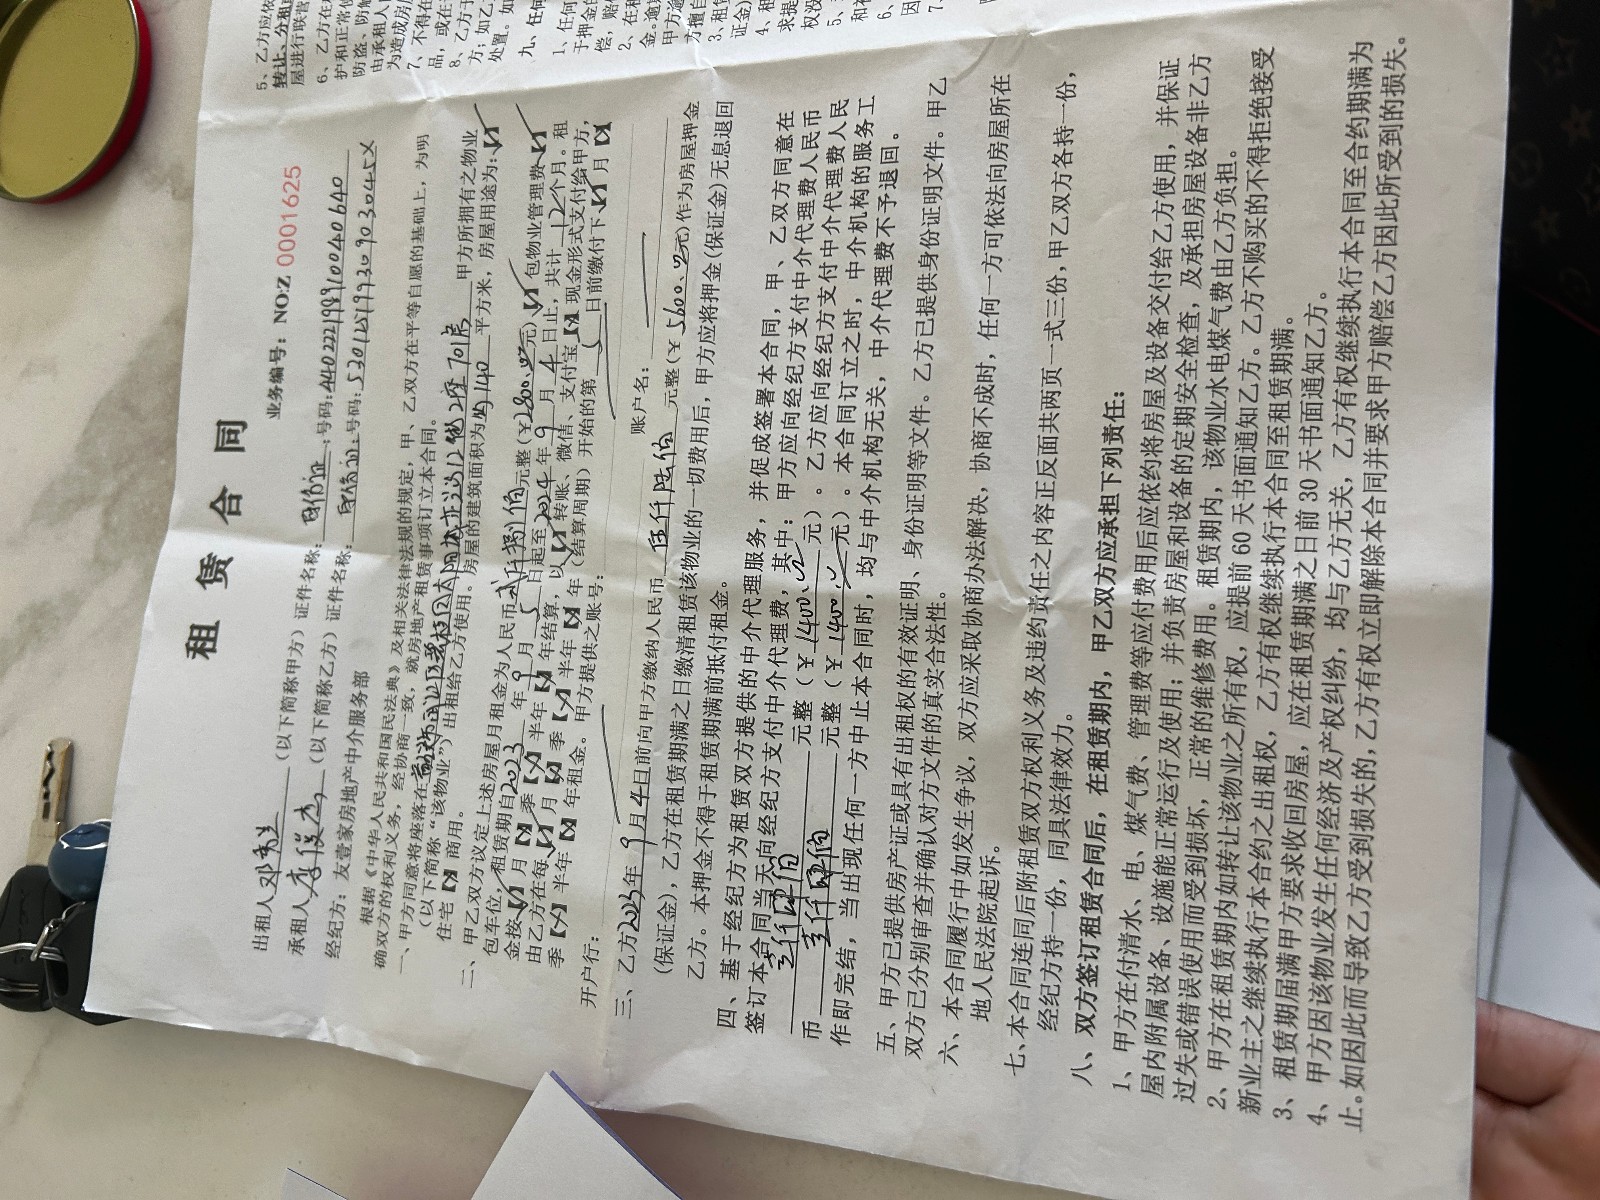 租赁合同
业务编号：NO:Z 0001625
出租人邓 （以下简称甲方）证件名称：身份证：号码：440222198910040640
承租人李俊杰（以下简称乙方）证件名称：身份证：号码：
经纪方：友壹家房地产中介服务部
根据《中华人民共和国民法典》及相关法律法规的规定，甲、乙双方在平等自愿的基础上，为明
确双方的权利义务，经协商一致，就房地产租赁事项订立本合同。
一、甲方同意将座落在 701房 甲方所拥有之物业
（以下简称“该物业”）出租给乙方使用。房屋的建筑面积为约140平方米，房屋用途为：【✓】
住宅【×】商用。
二、甲乙双方议定上述房屋月租金为人民币贰仟捌佰元整（￥2800.00元）【✓】包物业管理费【✓】
包车位，租赁期自2023年9月5日起至2024年9月4日止，共计12个月。租
金按【✓】月【×】季【×】半年【×】年结算，以【✓】转账、微信、支付宝【×】现金形式支付给甲方，
由乙方在每【✓】月【×】季【×】半年【×】年（结算周期）开始的第5日前缴付下【✓】月【×】
季【×】半年【×】年租金。甲方提供之账号：
开户行： 账户名：
三、乙方2023年9月4日前向甲方缴纳人民币伍仟陆佰元整（￥5600.00元）作为房屋押金
(保证金)，乙方在租赁期满之日缴清租赁该物业的一切费用后，甲方应将押金(保证金)无息退回
乙方。本押金不得于租赁期满前抵付租金。
四、基于经纪方为租赁双方提供的中介代理服务，并促成签署本合同，甲、乙双方同意在
签订本合同当天向经纪方支付中介代理费，其中：甲方应向经纪方支付中介代理费人民币
壹仟肆佰元整（￥1400.00元）。乙方应向经纪方支付中介代理费人民
币壹仟肆佰元整（￥1400.00元）。本合同订立之时，中介机构的服务工
作即完结，当出现任何一方中止本合同时，均与中介机构无关，中介代理费不予退回。
五、甲方已提供房产证或具有出租权的有效证明、身份证明等文件。乙方已提供身份证明文件。甲乙
双方已分别审查并确认对方文件的真实合法性。
六、本合同履行中如发生争议，双方应采取协商办法解决，协商不成时，任何一方可依法向房屋所在
地人民法院起诉。
七、本合同连同后附租赁双方权利义务及违约责任之内容正反面共两页一式三份，甲乙双方各持一份，
经纪方持一份，同具法律效力。
八、双方签订租赁合同后，在租赁期内，甲乙双方应承担下列责任：
1、甲方在付清水、电、煤气费、管理费等应付费用后应依约将房屋及设备交付给乙方使用，并保证
屋内附属设备、设施能正常运行及使用；并负责房屋和设备的定期安全检查，及承担房屋设备非乙方
过失或错误使用而受到损坏，正常的维修费用。租赁期内，该物业水电煤气费由乙方负担。
2、甲方在租赁期内如转让该物业之所有权，应提前60天书面通知乙方。乙方不购买的不得拒绝接受
新业主之继续执行本合约之出租权，乙方有权继续执行本合同至租赁期满。
3、租赁期届满甲方要求收回房屋，应在租赁期满之日前30天书面通知乙方。
4、甲方因该物业发生任何经济及产权纠纷，均与乙方无关，乙方有权继续执行本合同至合约期满为
止。如因此而导致乙方受到损失的，乙方有权立即解除本合同并要求甲方赔偿乙方因此所受到的损失。
5、乙方应依
转让、分租
屋进行联营
6、乙方在
护和正常使
防盗、防触
由承租人
为造成房
7、不得在
品，或在
8、乙方于
方；如乙
处置。如
九、任何
1、任何
于押金的
偿，赔
2、在租
金。逾
甲方
方擅自
3、租
证金）
4、租
求提
权没
5、
和
6、
因
7、